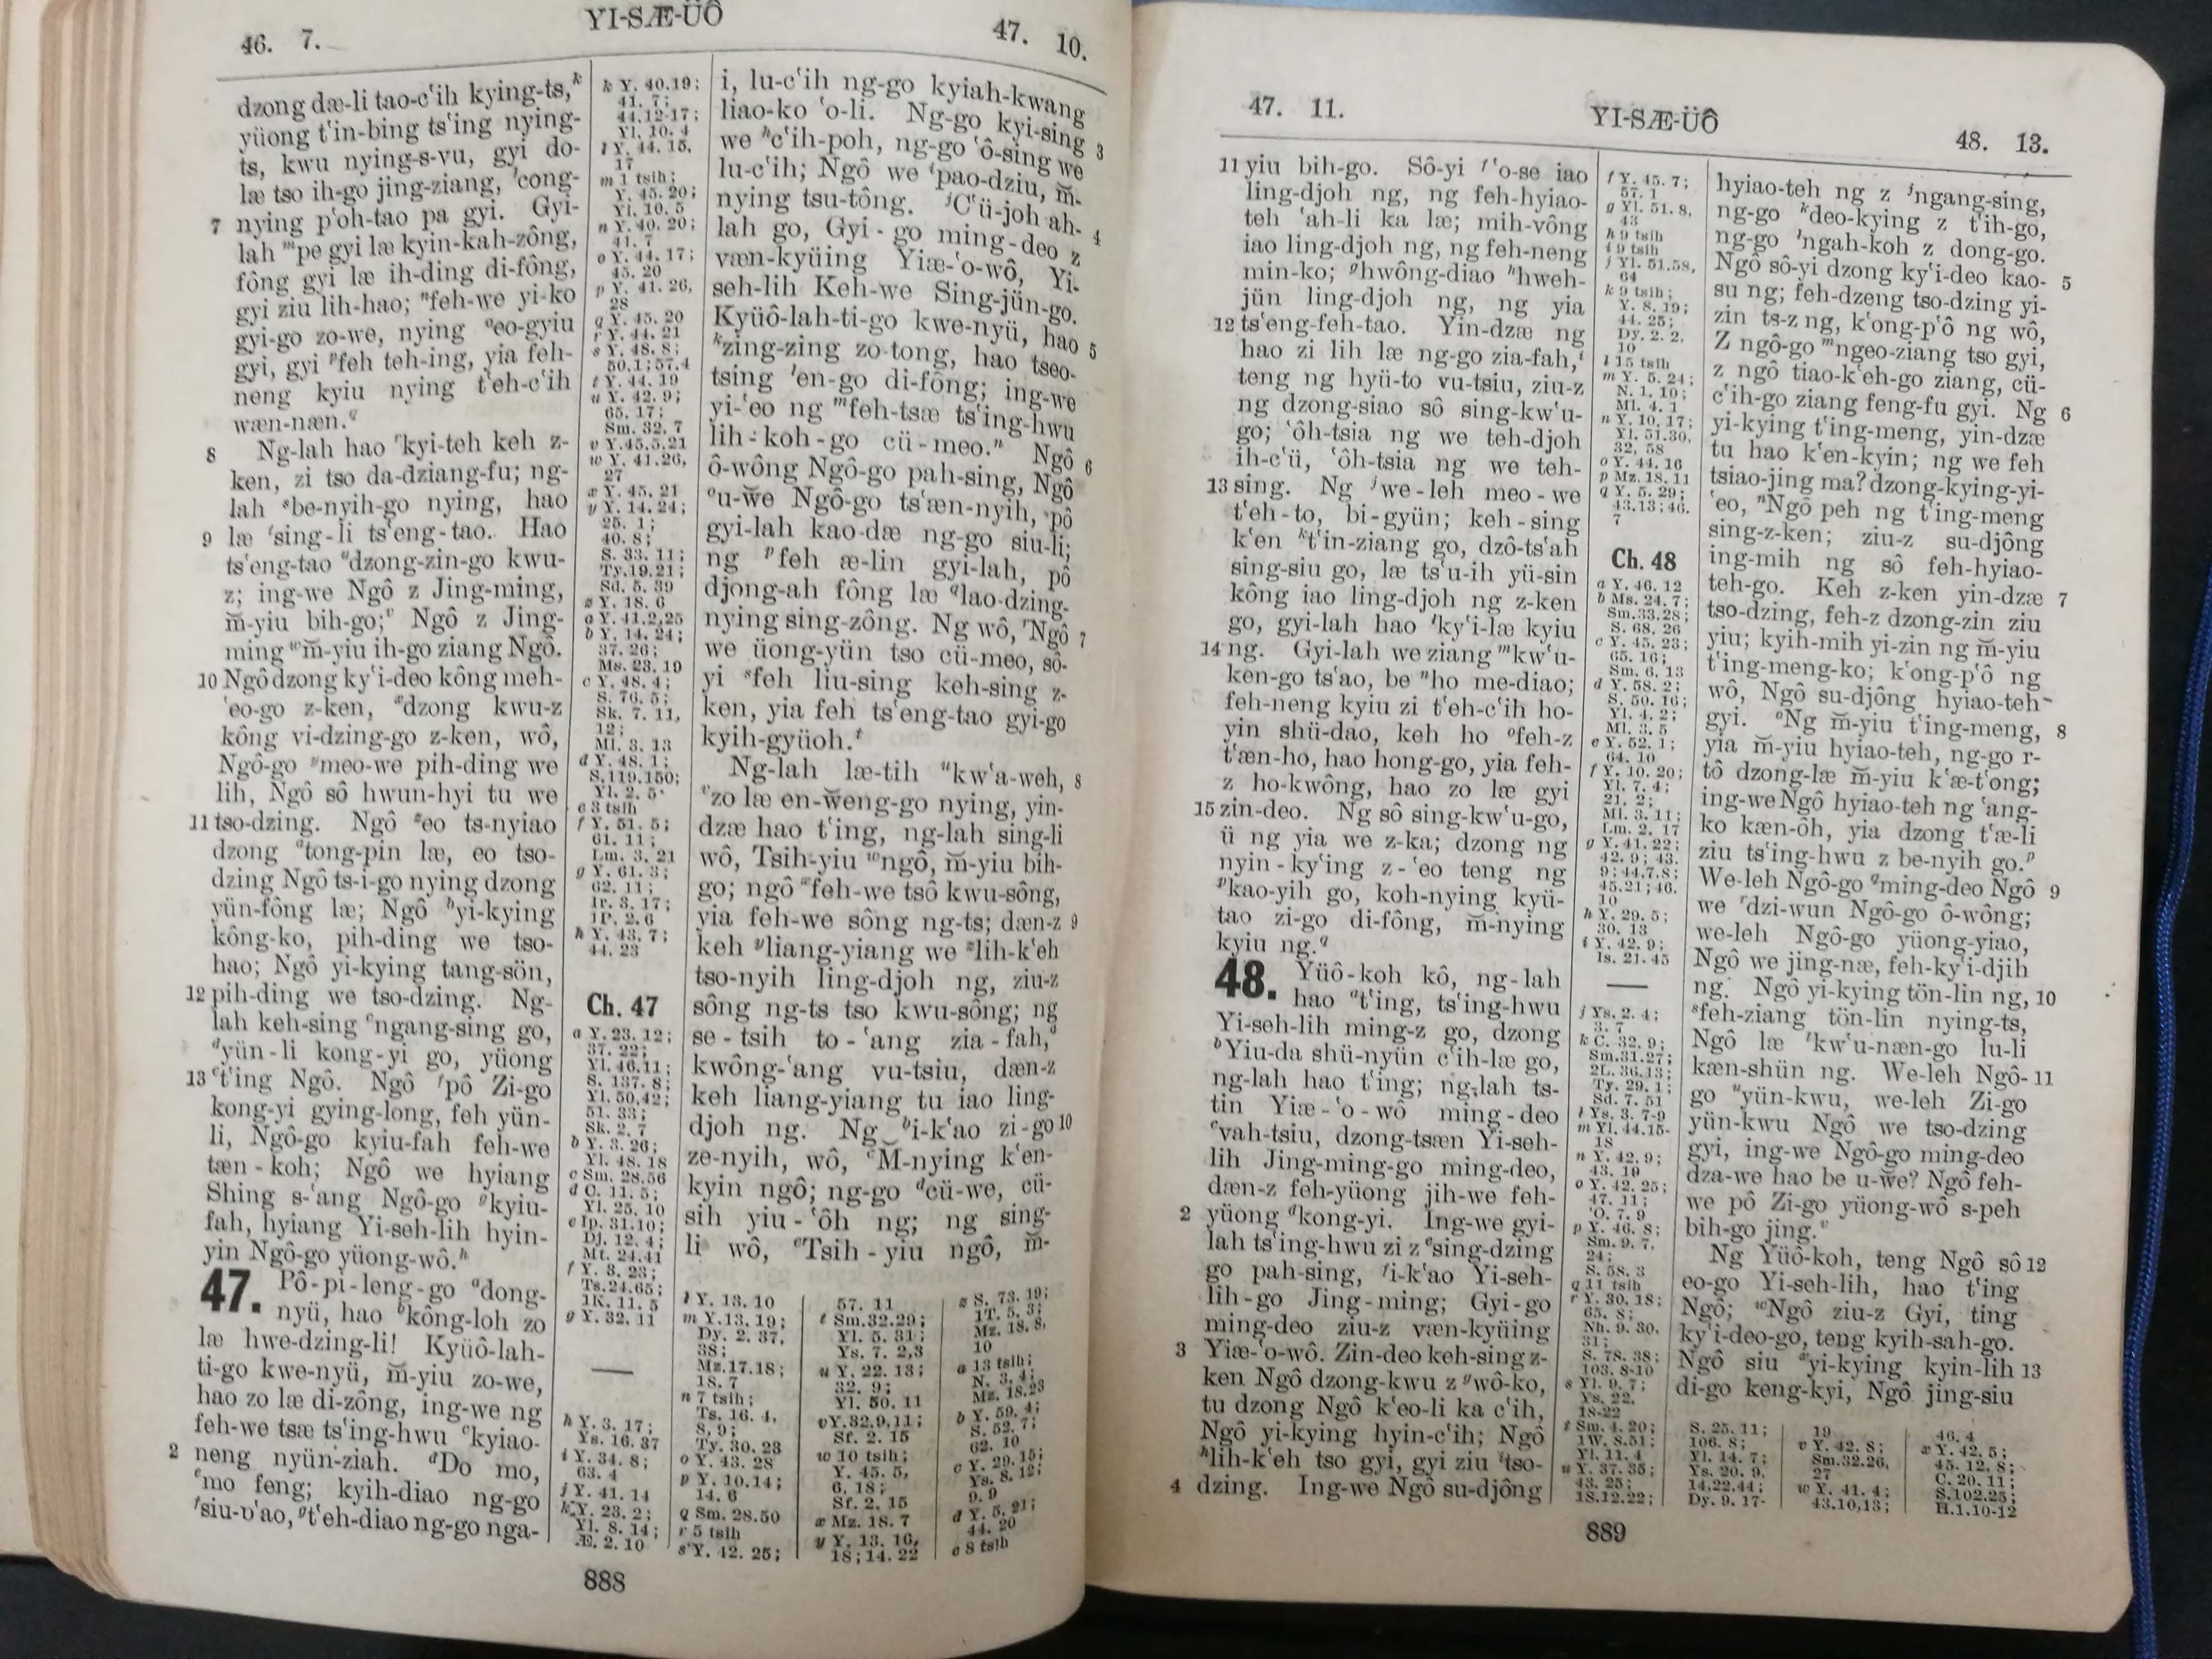 46. 7.
YI-SÆ-ÜÔ
47. 10.
dzong dæ-li tao-c‘ih kying-ts,ᵏ
yüong t‘in-bing ts‘ing nying-
ts, kwu nying-s-vu, gyi do-
læ tso ih-go jing-ziang, ˡcong-
7 nying p‘oh-tao pa gyi. Gyi-
lah ᵐpe gyi læ kyin-kah-zông,
fông gyi læ ih-ding di-fông,
gyi ziu lih-hao; ⁿfeh-we yi-ko
gyi-go zo-we, nying ᵒeo-gyiu
gyi, gyi ᵖfeh teh-ing, yia feh-
neng kyiu nying t‘eh-c‘ih
wæn-næn.q
8 Ng-lah hao ʳkyi-teh keh z-
ken, zi tso da-dziang-fu; ng-
lah ˢbe-nyih-go nying, hao
9 læ ᵗsing-li ts‘eng-tao. Hao
ts‘eng-tao ᵘdzong-zin-go kwu-
z; ing-we Ngô z Jing-ming,
m̆-yiu bih-go;ᵛ Ngô z Jing-
ming ʷm̆-yiu ih-go ziang Ngô.
10 Ngô dzong ky‘i-deo kông meh-
‘eo-go z-ken, ˣdzong kwu-z
kông vi-dzing-go z-ken, wô,
Ngô-go ʸmeo-we pih-ding we
lih, Ngô sô hwun-hyi tu we
11 tso-dzing. Ngô ᶻeo ts-nyiao
dzong ᵃtong-pin læ, eo tso-
dzing Ngô ts-i-go nying dzong
yün-fông læ; Ngô ᵇyi-kying
kông-ko, pih-ding we tso-
hao; Ngô yi-kying tang-sön,
12 pih-ding we tso-dzing. Ng-
lah keh-sing ᶜngang-sing go,
ᵈyün-li kong-yi go, yüong
13 ᵉt‘ing Ngô. Ngô ᶠpô Zi-go
kong-yi gying-long, feh yün-
li, Ngô-go kyiu-fah feh-we
tæn-koh; Ngô we hyiang
Shing s-‘ang Ngô-go ᵍkyiu-
fah, hyiang Yi-seh-lih hyin-
yin Ngô-go yüong-wô.ʰ
47. Pô-pi-leng-go ᵃdong-
nyü, hao ᵇkông-loh zo
læ hwe-dzing-li! Kyüô-lah-
ti-go kwe-nyü, m̆-yiu zo-we,
hao zo læ di-zông, ing-we ng
feh-we tsæ ts‘ing-hwu ᶜkyiao-
2 neng nyün-ziah. ᵈDo mo,
ᵉmo feng; kyih-diao ng-go
ᶠsiu-p‘ao, ᵍt‘eh-diao ng-go nga-
k Y. 40.19;
41. 7;
44.12-17;
Yl. 10. 4
l Y. 44. 15,
17
m 1 tsih;
Y. 45. 20;
Yl. 10. 5
n Y. 40. 20;
41. 7
o Y. 44. 17;
45. 20
p Y. 41. 26,
28
q Y. 45. 20
r Y. 44. 21
s Y. 48. 8;
50.1;57.4
t Y. 44. 19
u Y. 42. 9;
65. 17;
Sm. 32. 7
v Y.45.5,21
w Y. 41.26,
27
x Y. 45. 21
y Y. 14.24;
25. 1;
40. 8;
S. 33. 11;
Ty.19.21;
Sd. 5. 39
z Y. 18. 6
a Y. 41.2,25
b Y. 14. 24;
37. 26;
Ms. 23. 19
c Y. 48. 4;
S. 76. 5;
Sk. 7. 11,
12;
Ml. 3. 13
d Y. 48. 1;
S.119.150;
Yl. 2. 5
e 3 tsih
f Y. 51. 5;
61. 11;
Lm. 3. 21
g Y. 61. 3;
62. 11;
1F. 3. 17;
1P. 2. 6
h Y. 43. 7;
44. 23
Ch. 47
a Y. 23. 12;
37. 22;
Yl. 46.11;
S. 137. 8;
Yl. 50.42;
51. 33;
Sk. 2. 7
b Y. 3. 26;
Yl. 48. 18
c Sm. 28.56
d C. 11. 5;
Yl. 25. 10
e Ip. 31.10;
Dj. 12. 4;
Mt. 24.41
f Y. 3. 23;
Ts.24.65;
1K. 11. 5
g Y. 32. 11
h Y. 3. 17;
Ys. 16. 37
i Y. 34. 8;
63. 4
j Y. 41. 14
k Y. 23. 2;
Yl. 8. 14;
Æ. 2. 10
i, lu-c‘ih ng-go kyiah-kwang
liao-ko ‘o-li. Ng-go kyi-sing 3
we ʰc‘ih-poh, ng-go ‘ô-sing we
lu-c‘ih; Ngô we ⁱpao-dziu, m̆-
nying tsu-tông. ʲC‘ü-joh ah- 4
lah go, Gyi-go ming-deo z
væn-kyüing Yiæ-‘o-wô, Yi-
seh-lih Keh-we Sing-jün-go.
Kyüô-lah-ti-go kwe-nyü, hao 5
ᵏzing-zing zo-tong, hao tseo-
tsing ˡen-go di-fông; ing-we
yi-‘eo ng ᵐfeh-tsæ ts‘ing-hwu
lih-koh-go cü-meo.ⁿ Ngô 6
ô-wông Ngô-go pah-sing, Ngô
ᵒu-w̆e Ngô-go ts‘æn-nyih, pô
gyi-lah kao-dæ ng-go siu-li;
ng ᵖfeh æ-lin gyi-lah, pô
djong-ah fông læ qlao-dzing-
nying sing-zông. Ng wô, ʳNgô 7
we üong-yün tso cü-meo, sô-
yi ˢfeh liu-sing keh-sing z-
ken, yia feh ts‘eng-tao gyi-go
kyih-gyüoh.ᵗ
Ng-lah læ-tih ᵘkw‘a-weh, 8
ᵛzo læ en-w̆eng-go nying, yin-
dzæ hao t‘ing, ng-lah sing-li
wô, Tsih-yiu ʷngô, m̆-yiu bih-
go; ngô ˣfeh-we tsô kwu-sông,
yia feh-we sông ng-ts; dæn-z 9
keh ʸliang-yiang we ᶻlih-k‘eh
tso-nyih ling-djoh ng, ziu-z
sông ng-ts tso kwu-sông; ng
se-tsih to-‘ang zia-fah,ᵃ
kwông-‘ang vu-tsiu, dæn-z
keh liang-yiang tu iao ling-
djoh ng. Ng ᵇi-k‘ao zi-go 10
ze-nyih, wô, ᶜM̆-nying k‘en-
kyin ngô; ng-go ᵈcü-we, cü-
sih yiu-‘ôh ng; ng sing-
li wô, ᵉTsih-yiu ngô, m̆-
l Y. 13. 10
m Y.13. 19;
Dy. 2. 37,
38;
Mz.17.18;
18. 7
n 7 tsih;
Ts. 16. 4,
8, 9;
Ty. 30. 23
o Y. 43. 28
p Y. 10.14;
14. 6
q Sm. 28.50
r 5 tsih
s Y. 42. 25;
57. 11
t Sm.32.29;
Yl. 5. 31;
Ys. 7. 2,3
u Y. 22. 13;
32. 9;
Yl. 50. 11
v Y.32.9,11;
Sf. 2. 15
w 10 tsih;
Y. 45. 5,
6, 18;
Sf. 2. 15
x Mz. 18. 7
y Y. 13. 16,
18;14. 22
z S. 73. 19;
1T. 5. 3;
Mz. 18. 8,
10
a 13 tsih;
N. 3. 4;
Mz. 18.23
b Y. 59. 4;
S. 52. 7;
62. 10
c Y. 29.15;
Ys. 8. 12;
9. 9
d Y. 5. 21;
44. 20
e 8 tsih
888
47. 11.
YI-SÆ-ÜÔ
48. 13.
11 yiu bih-go. Sô-yi ᶠ‘o-se iao
ling-djoh ng, ng feh-hyiao-
teh ‘ah-li ka læ; mih-vông
iao ling-djoh ng, ng feh-neng
min-ko; ᵍhwông-diao ʰhweh-
jün ling-djoh ng, ng yia
12 ts‘eng-feh-tao. Yin-dzæ ng
hao zi lih læ ng-go zia-fah,ⁱ
teng ng hyü-to vu-tsiu, ziu-z
ng dzong-siao sô sing-kw‘u-
go; ‘ôh-tsia ng we teh-djoh
ih-c‘ü, ‘ôh-tsia ng we teh-
13 sing. Ng ʲwe-leh meo-we
t‘eh-to, bi-gyün; keh-sing
k‘en ᵏt‘in-ziang go, dzô-ts‘ah
sing-siu go, læ ts‘u-ih yü-sin
kông iao ling-djoh ng z-ken
go, gyi-lah hao ˡky‘i-læ kyiu
14 ng. Gyi-lah we ziang ᵐkw‘u-
ken-go ts‘ao, be ⁿho me-diao;
feh-neng kyiu zi t‘eh-c‘ih ho-
yin shü-dao, keh ho ᵒfeh-z
t‘æn-ho, hao hong-go, yia feh-
z ho-kwông, hao zo læ gyi
15 zin-deo. Ng sô sing-kw‘u-go,
ü ng yia we z-ka; dzong ng
nyin-ky‘ing z-‘eo teng ng
ᵖkao-yih go, koh-nying kyü-
tao zi-go di-fông, m̆-nying
kyiu ng.q
48. Yüô-koh kô, ng-lah
hao ᵃt‘ing, ts‘ing-hwu
Yi-seh-lih ming-z go, dzong
ᵇYiu-da shü-nyün c‘ih-læ go,
ng-lah hao t‘ing; ng-lah ts-
tin Yiæ-‘o-wô ming-deo
ᶜvah-tsiu, dzong-tsæn Yi-seh-
lih Jing-ming-go ming-deo,
dæn-z feh-yüong jih-we feh-
2 yüong ᵈkong-yi. Ing-we gyi-
lah ts‘ing-hwu zi z ᵉsing-dzing
go pah-sing, ᶠi-k‘ao Yi-seh-
lih-go Jing-ming; Gyi-go
ming-deo ziu-z væn-kyüing
3 Yiæ-‘o-wô. Zin-deo keh-sing z-
ken Ngô dzong-kwu z ᵍwô-ko,
tu dzong Ngô k‘eo-li ka c‘ih,
Ngô yi-kying hyin-c‘ih; Ngô
ʰlih-k‘eh tso gyi, gyi ziu ⁱtso-
4 dzing. Ing-we Ngô su-djông
f Y. 45. 7;
57. 1
g Yl. 51. 8,
43
h 9 tsih
i 9 tsih
j Yl. 51.58,
64
k 9 tsih;
Y. 8. 19;
44. 25;
Dy. 2. 2,
10
l 15 tsih
m Y. 5. 24;
N. 1. 10;
Ml. 4. 1
n Y. 10.17;
Yl. 51.30,
32, 58
o Y. 44. 16
p Mz. 18. 11
q Y. 5. 29;
43.13;46.
7
Ch. 48
a Y. 46. 12
b Ms. 24. 7;
Sm.33.28;
S. 68. 26
c Y. 45. 23;
65. 16;
Sm. 6. 13
d Y. 58. 2;
S. 50. 16;
Yl. 4. 2;
Ml. 3. 5
e Y. 52. 1;
64. 10
f Y. 10. 20;
Yl. 7. 4;
21. 2;
Ml. 3. 11;
Lm. 2. 17
g Y.41.22;
42. 9; 43.
9;44.7,8;
45.21;46.
10
h Y. 29. 5;
30. 13
i Y. 42. 9;
Is. 21. 45
j Ys. 2. 4;
3. 7
k C. 32. 9;
Sm.31.27;
2L. 36.13;
Ty. 29. 1;
Sd. 7. 51
l Ys. 3. 7-9
m Yl. 44.15-
18
n Y. 42. 9;
43. 19
o Y. 42. 25;
47. 11;
‘O. 7. 9
p Y. 46. 8;
Sm. 9. 7,
24;
S. 58. 3
q 11 tsih
r Y. 30. 18;
65. 8;
Nh. 9. 30,
31;
S. 78. 38;
103. 8-10
s Yl. 9. 7;
Ys. 22.
18-22
t Sm. 4. 20;
1W. 8.51;
Yl. 11. 4
u Y. 37. 35;
43. 25;
18.12.22;
hyiao-teh ng z ʲngang-sing,
ng-go ᵏdeo-kying z t‘ih-go,
ng-go ˡngah-koh z dong-go.
Ngô sô-yi dzong ky‘i-deo kao- 5
su ng; feh-dzeng tso-dzing yi-
zin ts-z ng, k‘ong-p‘ô ng wô,
Z ngô-go ᵐngeo-ziang tso gyi,
z ngô tiao-k‘eh-go ziang, cü-
c‘ih-go ziang feng-fu gyi. Ng 6
yi-kying t‘ing-meng, yin-dzæ
tu hao k‘en-kyin; ng we feh
tsiao-jing ma? dzong-kying-yi-
‘eo, ⁿNgô peh ng t‘ing-meng
sing-z-ken; ziu-z su-djông
ing-mih ng sô feh-hyiao-
teh-go. Keh z-ken yin-dzæ 7
tso-dzing, feh-z dzong-zin ziu
yiu; kyih-mih yi-zin ng m̆-yiu
t‘ing-meng-ko; k‘ong-p‘ô ng
wô, Ngô su-djông hyiao-teh-
gyi. ᵒNg m̆-yiu t‘ing-meng, 8
yia m̆-yiu hyiao-teh, ng-go r-
tô dzong-læ m̆-yiu k‘æ-t‘ong;
ing-we Ngô hyiao-teh ng ‘ang-
ko kæn-ôh, yia dzong t‘æ-li
ziu ts‘ing-hwu z be-nyih go.ᵖ
We-leh Ngô-go qming-deo Ngô 9
we ʳdzi-wun Ngô-go ô-wông;
we-leh Ngô-go yüong-yiao,
Ngô we jing-næ, feh-ky‘i-djih
ng. Ngô yi-kying tön-lin ng, 10
ˢfeh-ziang tön-lin nying-ts,
Ngô læ ᵗkw‘u-næn-go lu-li
kæn-shün ng. We-leh Ngô- 11
go ᵘyün-kwu, we-leh Zi-go
yün-kwu Ngô we tso-dzing
gyi, ing-we Ngô-go ming-deo
dza-we hao be u-w̆e? Ngô feh-
we pô Zi-go yüong-wô s-peh
bih-go jing.ᵛ
Ng Yüô-koh, teng Ngô sô 12
eo-go Yi-seh-lih, hao t‘ing
Ngô; ʷNgô ziu-z Gyi, ting
ky‘i-deo-go, teng kyih-sah-go.
Ngô siu ˣyi-kying kyin-lih 13
di-go keng-kyi, Ngô jing-siu
S. 25. 11;
106. 8;
Yl. 14. 7;
Ys. 20. 9,
14,22,44;
Dy. 9. 17-
19
v Y. 42. 8;
Sm.32.26,
27
w Y. 41. 4;
43.10,13;
46. 4
x Y. 42. 5;
45. 12, 8;
C. 20. 11;
S.102.25;
H.1.10-12
889